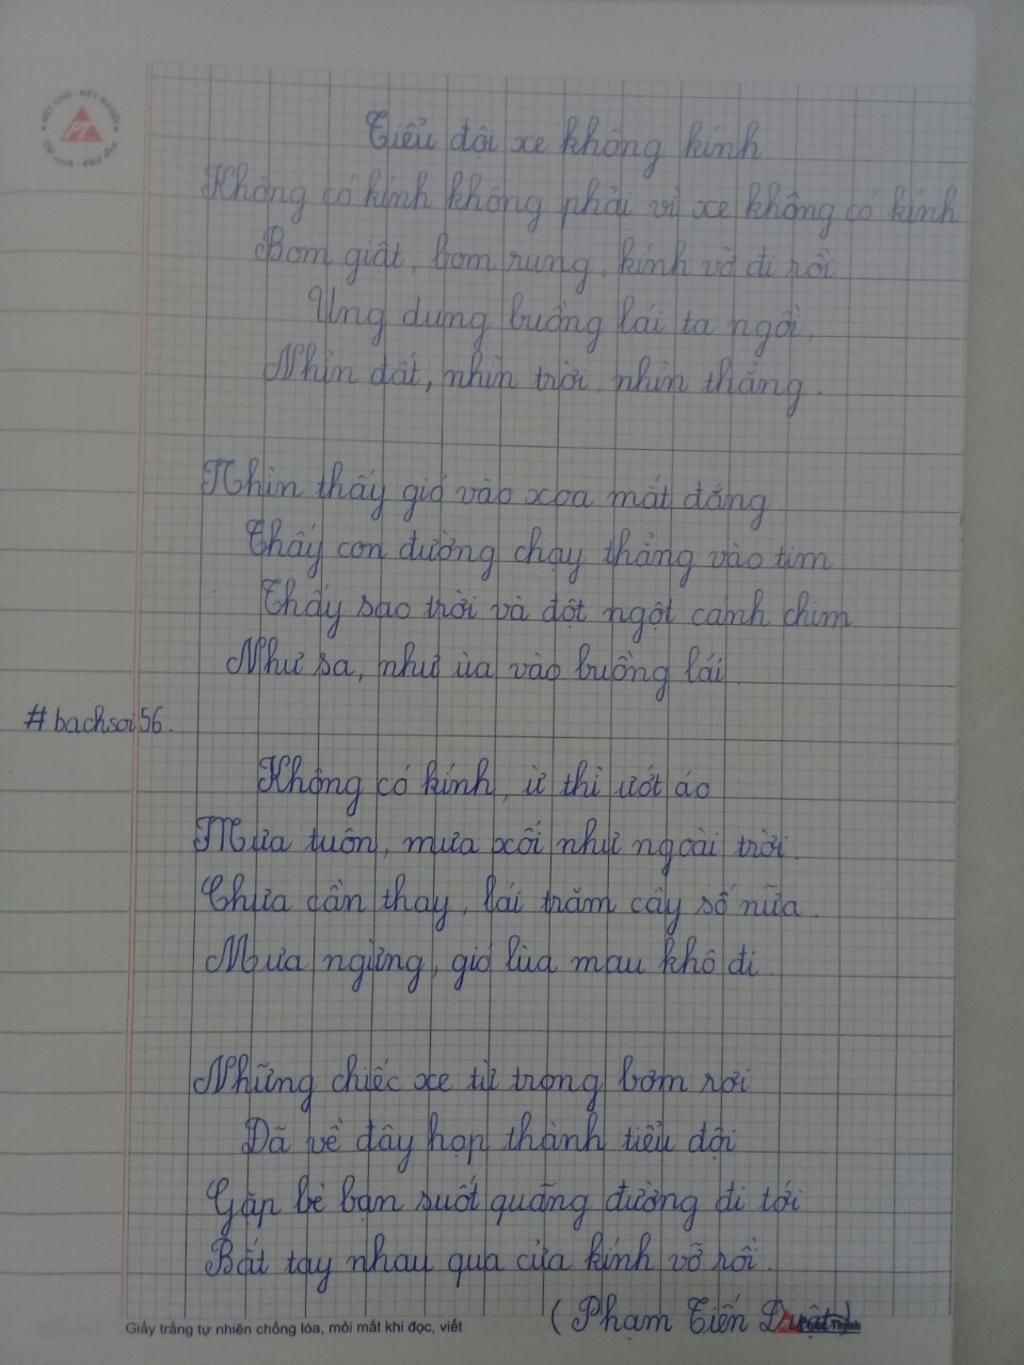 NÉT CHỮ - NẾT NGƯỜI
PT
Tiểu đội xe không kính
Không có kính không phải vì xe không có kính
Bom giật, bom rung, kính vỡ đi rồi
Ung dung buồng lái ta ngồi,
Nhìn đất, nhìn trời, nhìn thẳng.
Nhìn thấy gió vào xoa mắt đắng
Thấy con đường chạy thẳng vào tim
Thấy sao trời và đột ngột cánh chim
Như sa, như ùa vào buồng lái.
#bachsoi56.
Không có kính, ừ thì ướt áo
Mưa tuôn, mưa xối như ngoài trời.
Chưa cần thay, lái trăm cây số nữa.
Mưa ngừng, gió lùa mau khô đi.
Những chiếc xe từ trong bom rơi
Đã về đây họp thành tiểu đội
Gặp bè bạn suốt quãng đường đi tới
Bắt tay nhau qua cửa kính vỡ rồi.
(Phạm Tiến Duật)
Giấy trắng tự nhiên chống lóa, mỏi mắt khi đọc, viết